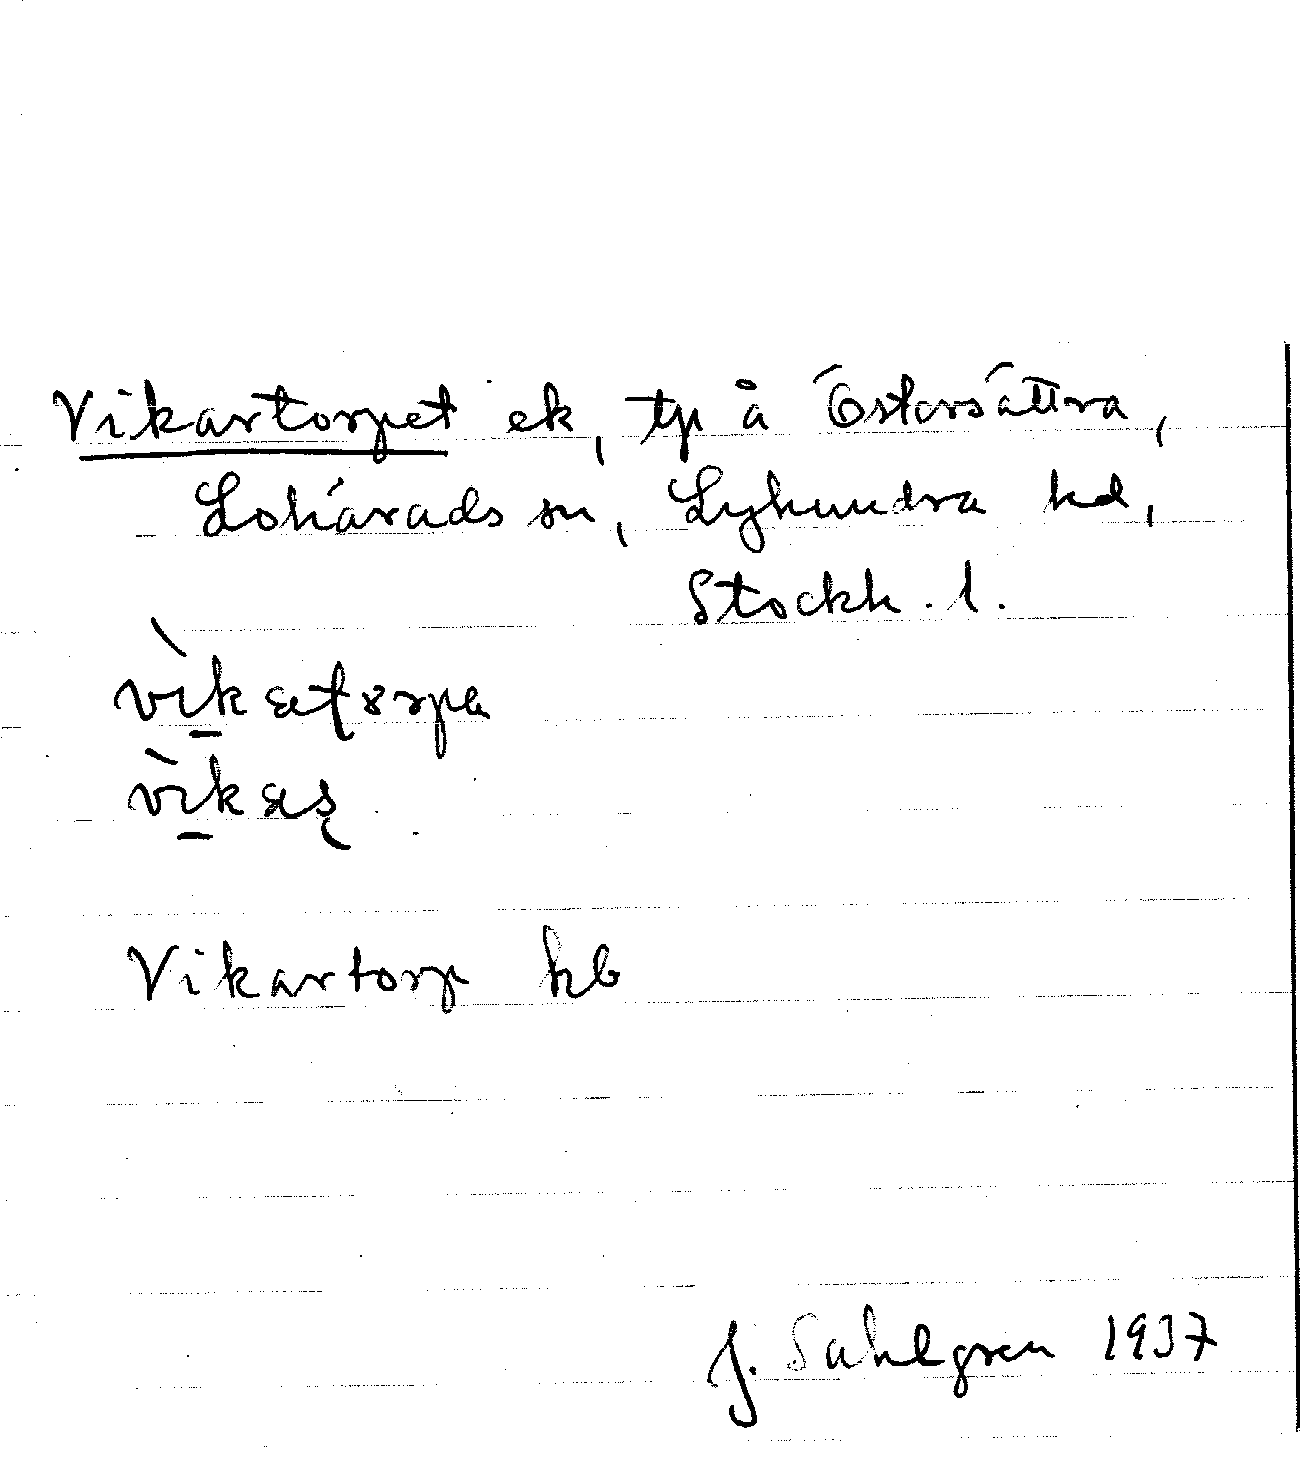 Vikartorpet ek, tp å Östersättra,
Lohärads sn, Lyhundra hd,
Stockh. l.
Vikartorp kb
J. Sahlgren 1937